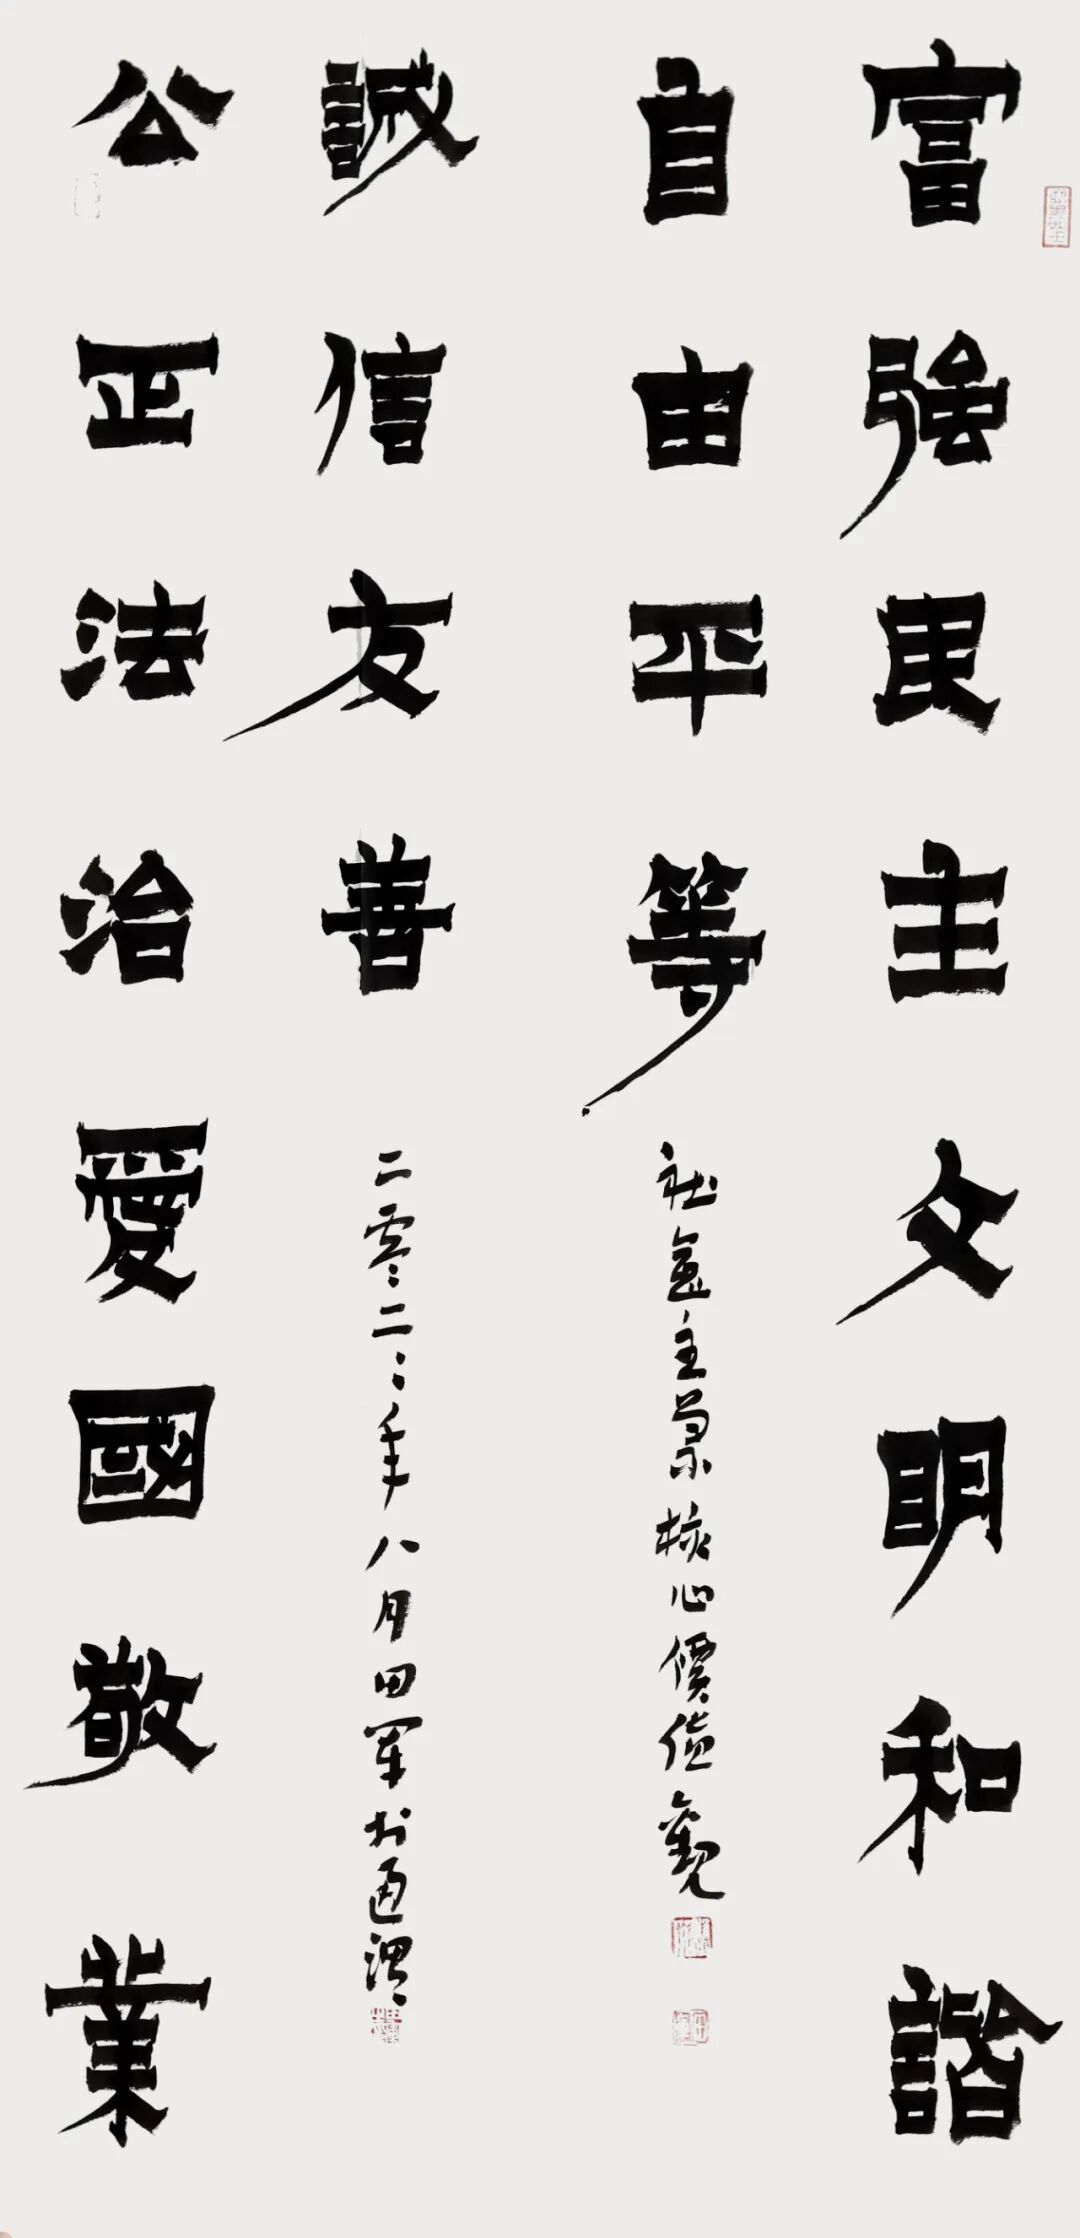 富強民主文明和諧
自由平等
社會主義核心價值觀
誠信友善
二零二〻年八月田軍於通渭
公正法治愛國敬業